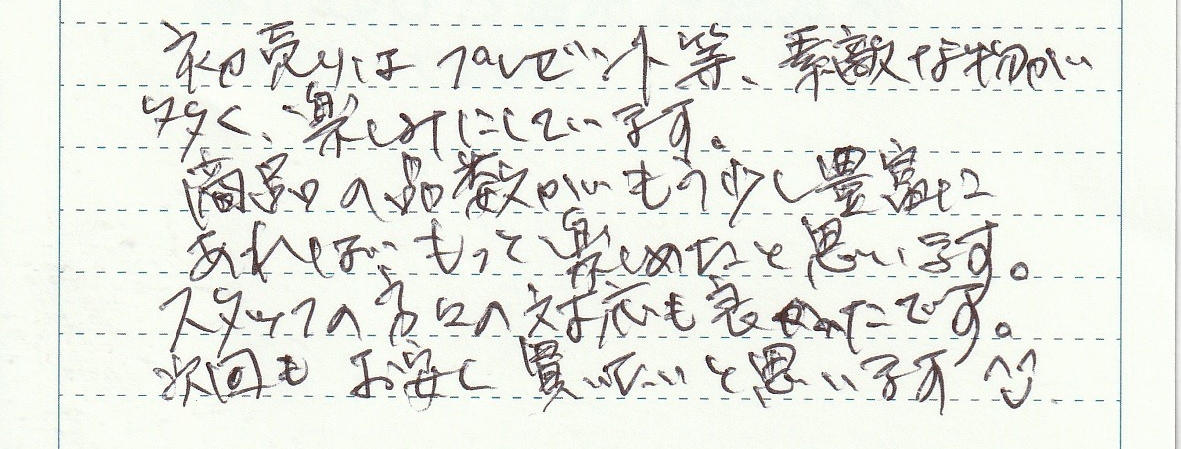 初売りはプレゼント等、素敵な物がい
多く、楽しみにしています。
商品の品数がもう少し豊富に
あればもっと楽しめたと思います。
スタッフの方々の対応も良かったです。
次回もお安く買いたいと思います